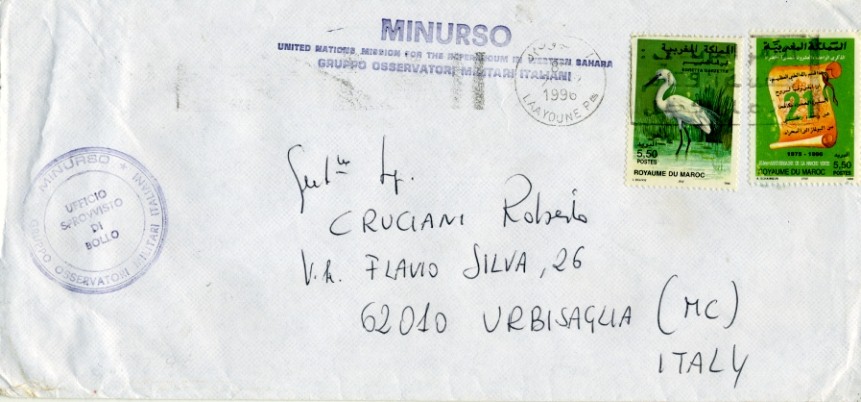 MINURSO
UNITED NATIONS MISSION FOR THE REFERENDUM IN WESTERN SAHARA
GRUPPO OSSERVATORI MILITARI ITALIANI
1996
LAAYOUNE Pal
المملكة المغربية
EGRETTA GARZETTA
5,50
POSTES
البريد
ROYAUME DU MAROC
المملكة المغربية
21
1975 - 1996
5,50
POSTES
البريد
ROYAUME DU MAROC
MINURSO
GRUPPO OSSERVATORI MILITARI ITALIANI
UFFICIO
SPROVVISTO
DI
BOLLO
CRUCIANI Roberto
FLAVIO SILVA, 26
62010 URBISAGLIA (MC)
ITALY